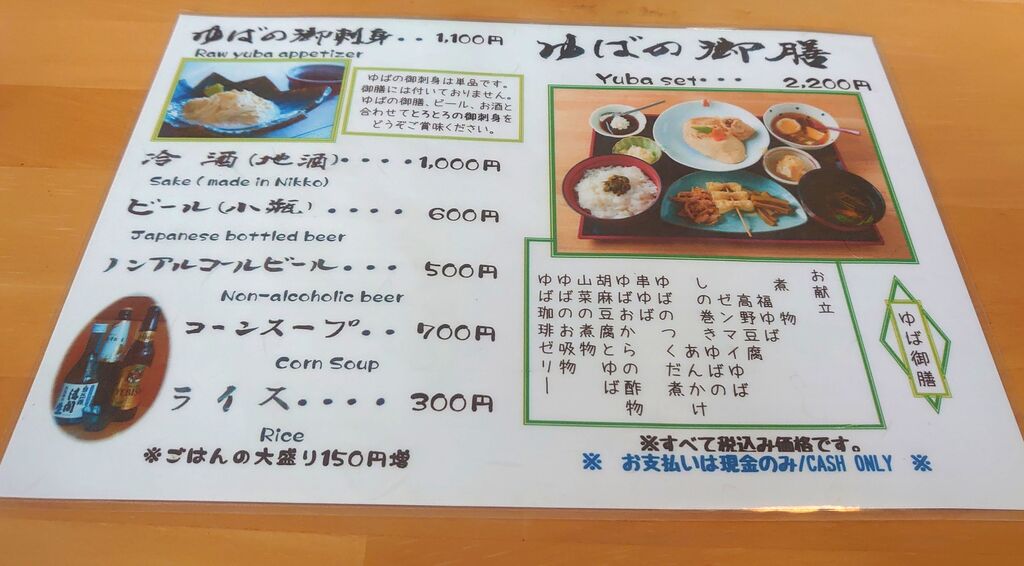 ゆばの御刺身‥1,100円
Raw yuba appetizer
ゆばの御刺身は単品です。
御膳には付いておりません。
ゆばの御膳、ビール、お酒と
合わせてとろとろの御刺身を
どうぞご賞味ください。
冷酒(地酒)・・・・1,000円
Sake ( made in Nikko)
ビール(小瓶)・・・・600円
Japanese bottled beer
ノンアルコールビール・・・500円
Non-alcoholic beer
コーンスープ・・700円
Corn Soup
ライス・・・・300円
Rice
※ごはんの大盛り150円増
ゆばの御膳
Yuba set・・・2,200円
お献立
煮物
福ゆば
高野豆腐
ゼンマイゆば
しの巻きゆばの
あんかけ
ゆばのつくだ煮
串ゆば
ゆばおからの酢物
胡麻豆腐とゆば
山菜の煮物
ゆばのお吸物
ゆば珈琲ゼリー
ゆば御膳
※すべて税込み価格です。
※ お支払いは現金のみ/CASH ONLY ※